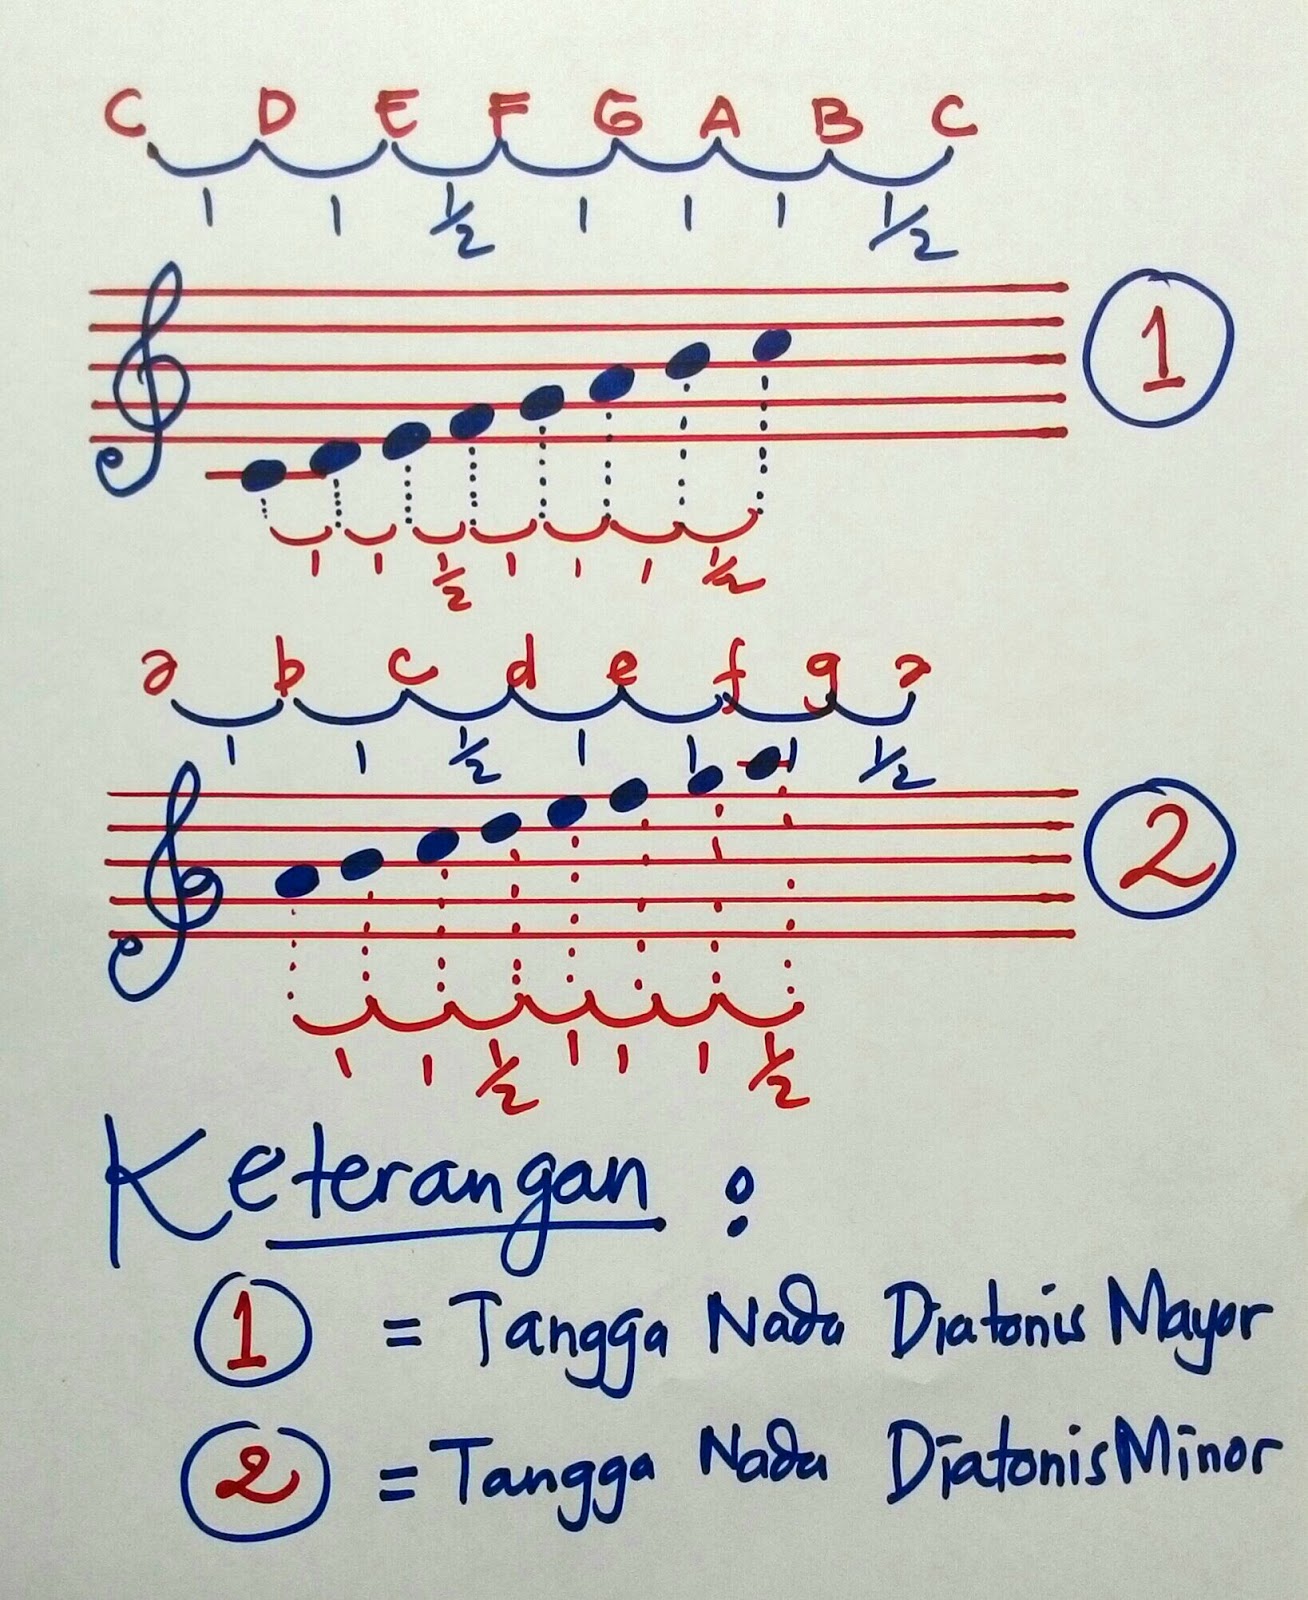 C D E F G A B C
1 1 1/2 1 1 1 1/2
1
1 1 1/2 1 1 1 1/2
a b c d e f g a
1 1 1/2 1 1 1 1/2
2
1 1 1/2 1 1 1 1/2
Keterangan :
1 = Tangga Nada Diatonis Mayor
2 = Tangga Nada Diatonis Minor